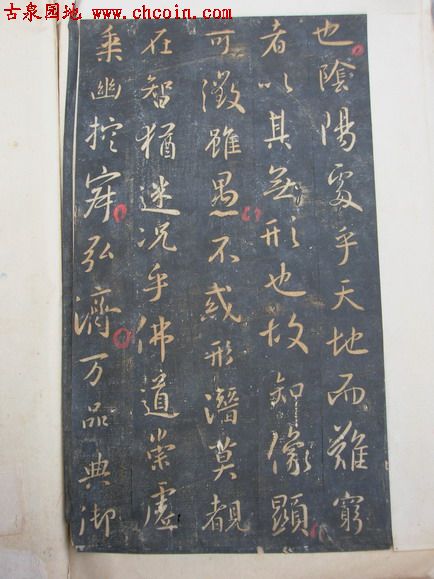 古泉园地 www.chcoin.com
也陰陽處乎天地而難窮
者以其無形也故知像顯
可徵雖愚不惑形潛莫覩
在智猶迷况乎佛道崇虛
乘幽控寂弘濟万品典御